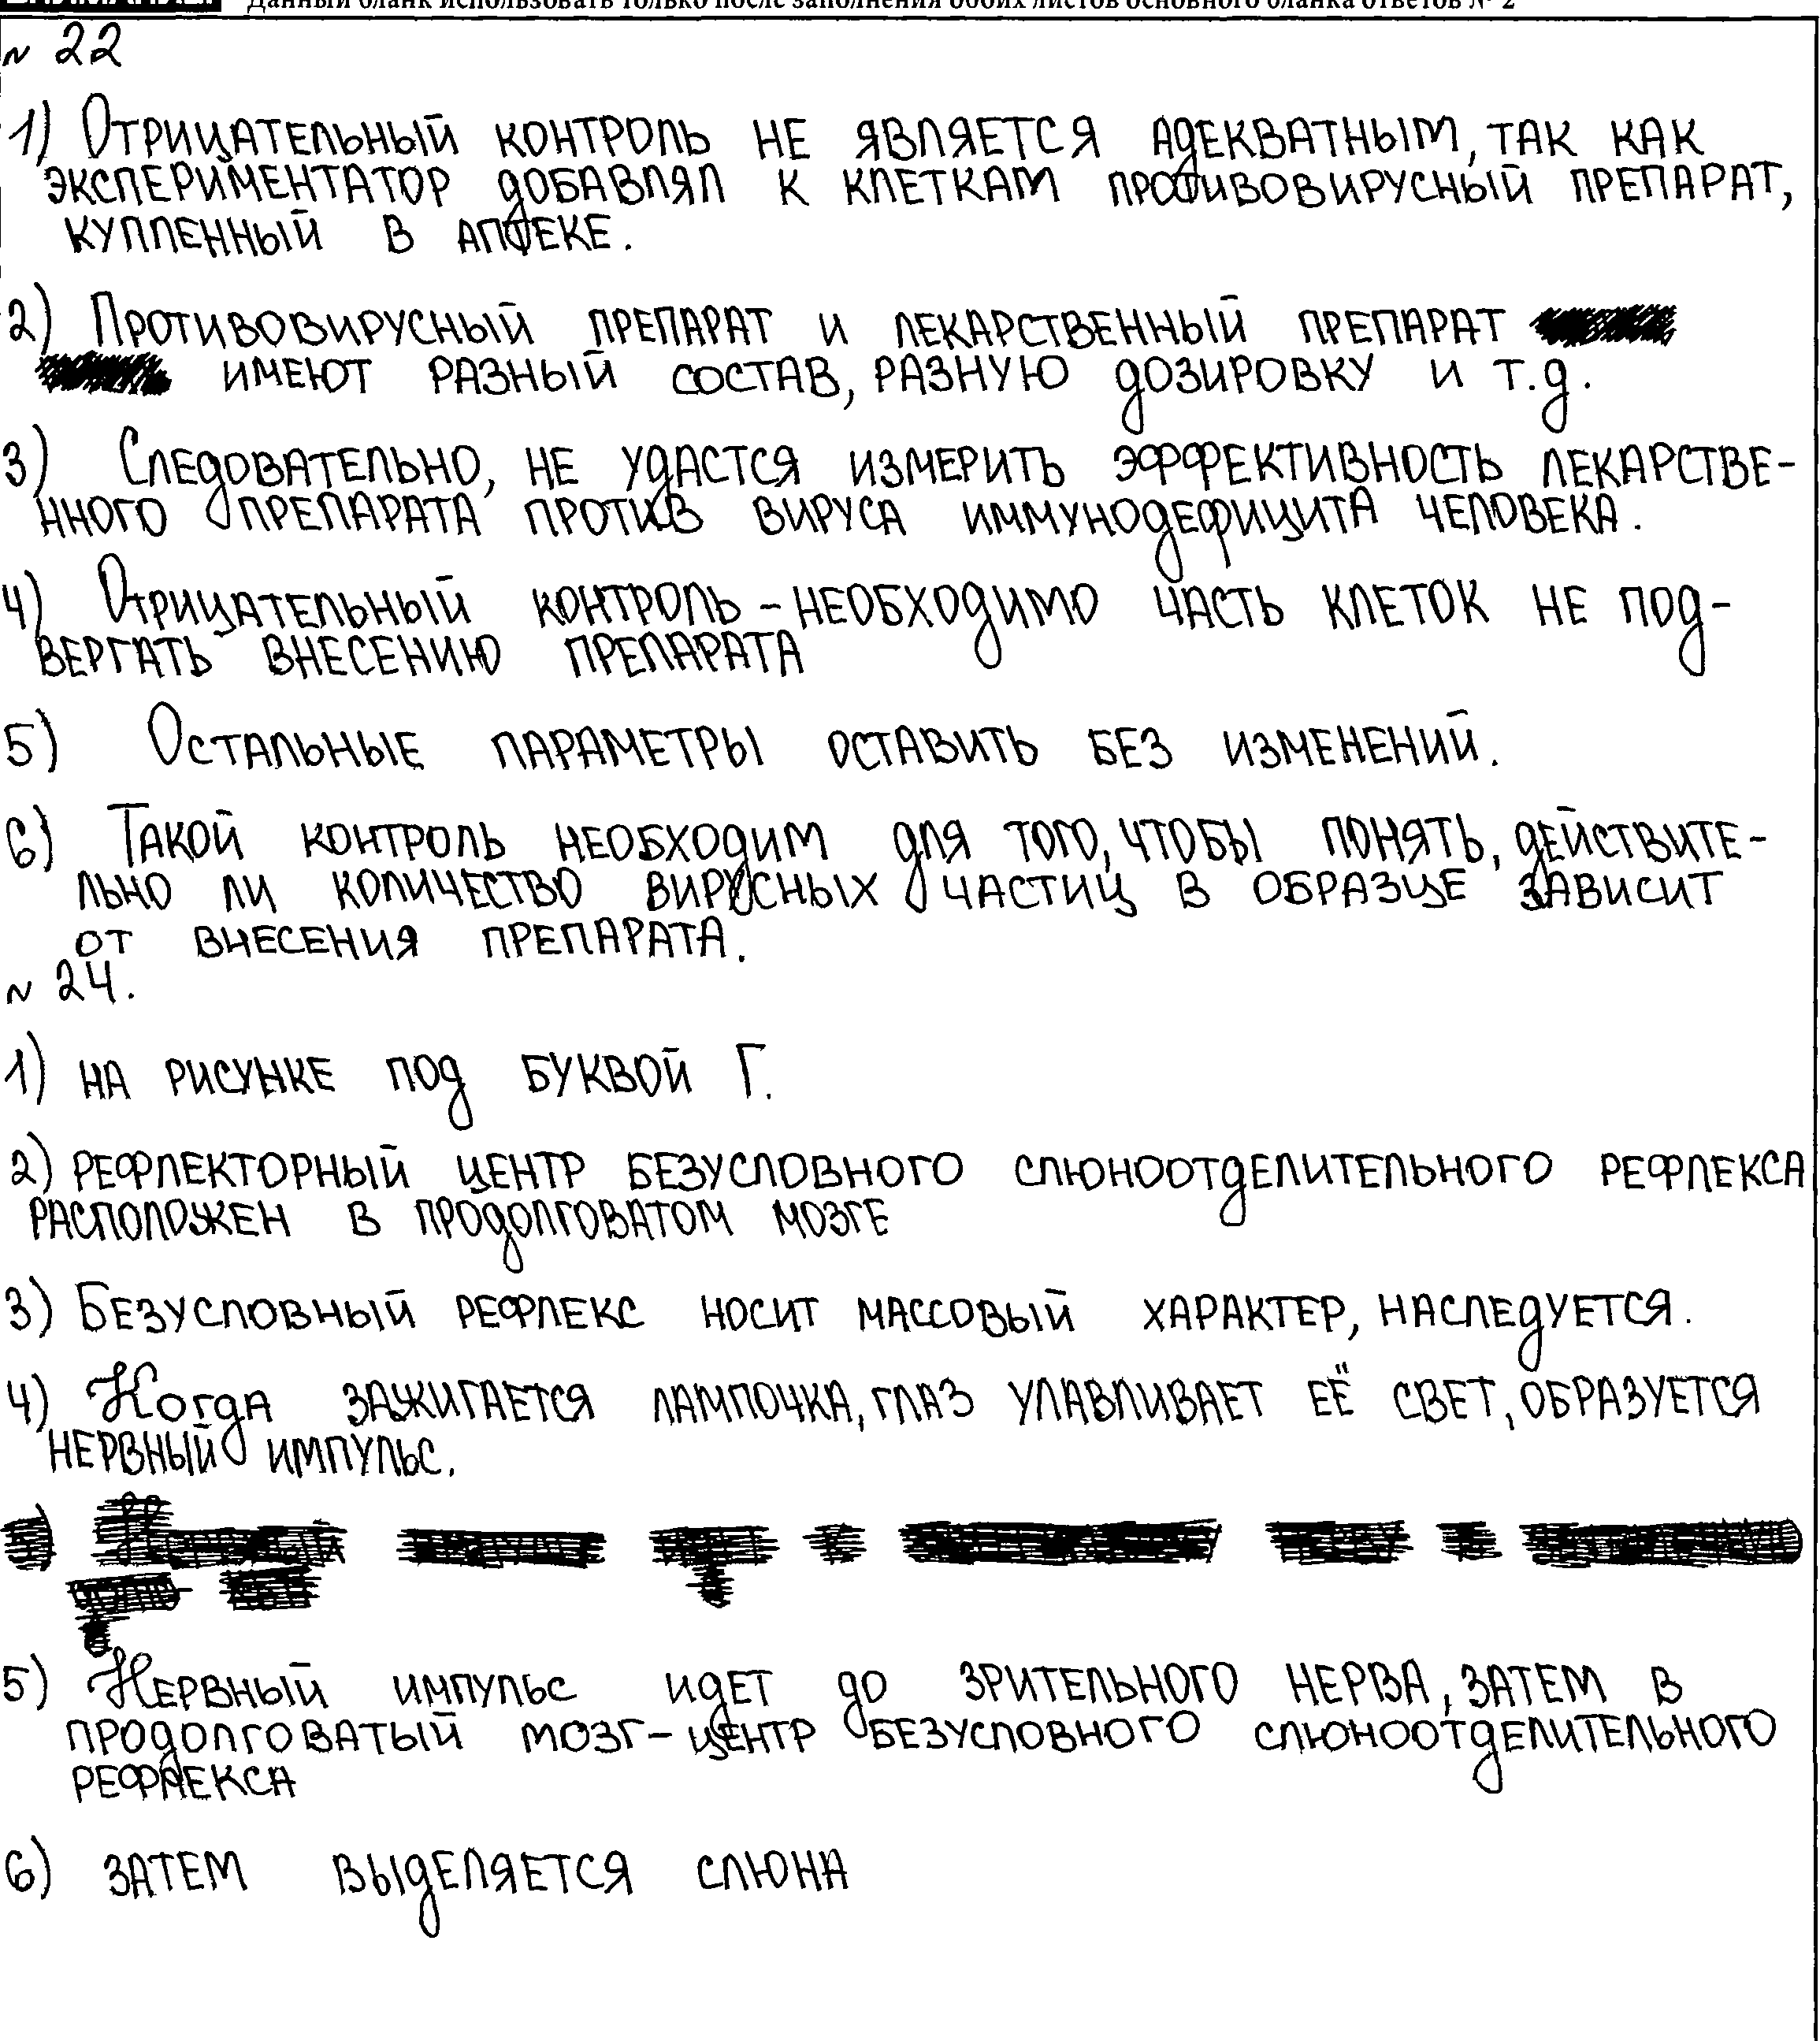 Данный бланк использовать только после заполнения обоих листов основного бланка ответов № 2
№ 22
1) Отрицательный контроль не является адекватным, так как
экспериментатор добавлял к клеткам противовирусный препарат,
купленный в аптеке.
2) Противовирусный препарат и лекарственный препарат
имеют разный состав, разную дозировку и т.д.
3) Следовательно, не удастся измерить эффективность лекарстве-
нного препарата против вируса иммунодефицита человека.
4) Отрицательный контроль - необходимо часть клеток не под-
вергать внесению препарата
5) Остальные параметры оставить без изменений.
6) Такой контроль необходим для того, чтобы понять, действите-
льно ли количество вирусных частиц в образце зависит
от внесения препарата.
№ 24.
1) на рисунке под буквой Г.
2) рефлекторный центр безусловного слюноотделительного рефлекса
расположен в продолговатом мозге
3) Безусловный рефлекс носит массовый характер, наследуется.
4) Когда зажигается лампочка, глаз улавливает её свет, образуется
нервный импульс.
5) Нервный импульс идет до зрительного нерва, затем в
продолговатый мозг - центр безусловного слюноотделительного
рефлекса
6) затем выделяется слюна